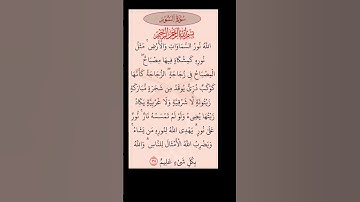 سورة النور
بسم الله الرحمن الرحيم
اللَّهُ نُورُ السَّمَاوَاتِ وَالْأَرْضِ ۚ مَثَلُ
نُورِهِ كَمِشْكَاةٍ فِيهَا مِصْبَاحٌ ۖ
الْمِصْبَاحُ فِي زُجَاجَةٍ ۖ الزُّجَاجَةُ كَأَنَّهَا
كَوْكَبٌ دُرِّيٌّ يُوقَدُ مِن شَجَرَةٍ مُّبَارَكَةٍ
زَيْتُونَةٍ لَّا شَرْقِيَّةٍ وَلَا غَرْبِيَّةٍ يَكَادُ
زَيْتُهَا يُضِيءُ وَلَوْ لَمْ تَمْسَسْهُ نَارٌ ۚ نُّورٌ
عَلَىٰ نُورٍ ۗ يَهْدِي اللَّهُ لِنُورِهِ مَن يَشَاءُ ۚ
وَيَضْرِبُ اللَّهُ الْأَمْثَالَ لِلنَّاسِ ۗ وَاللَّهُ
بِكُلِّ شَيْءٍ عَلِيمٌ ﴿٣٥﴾